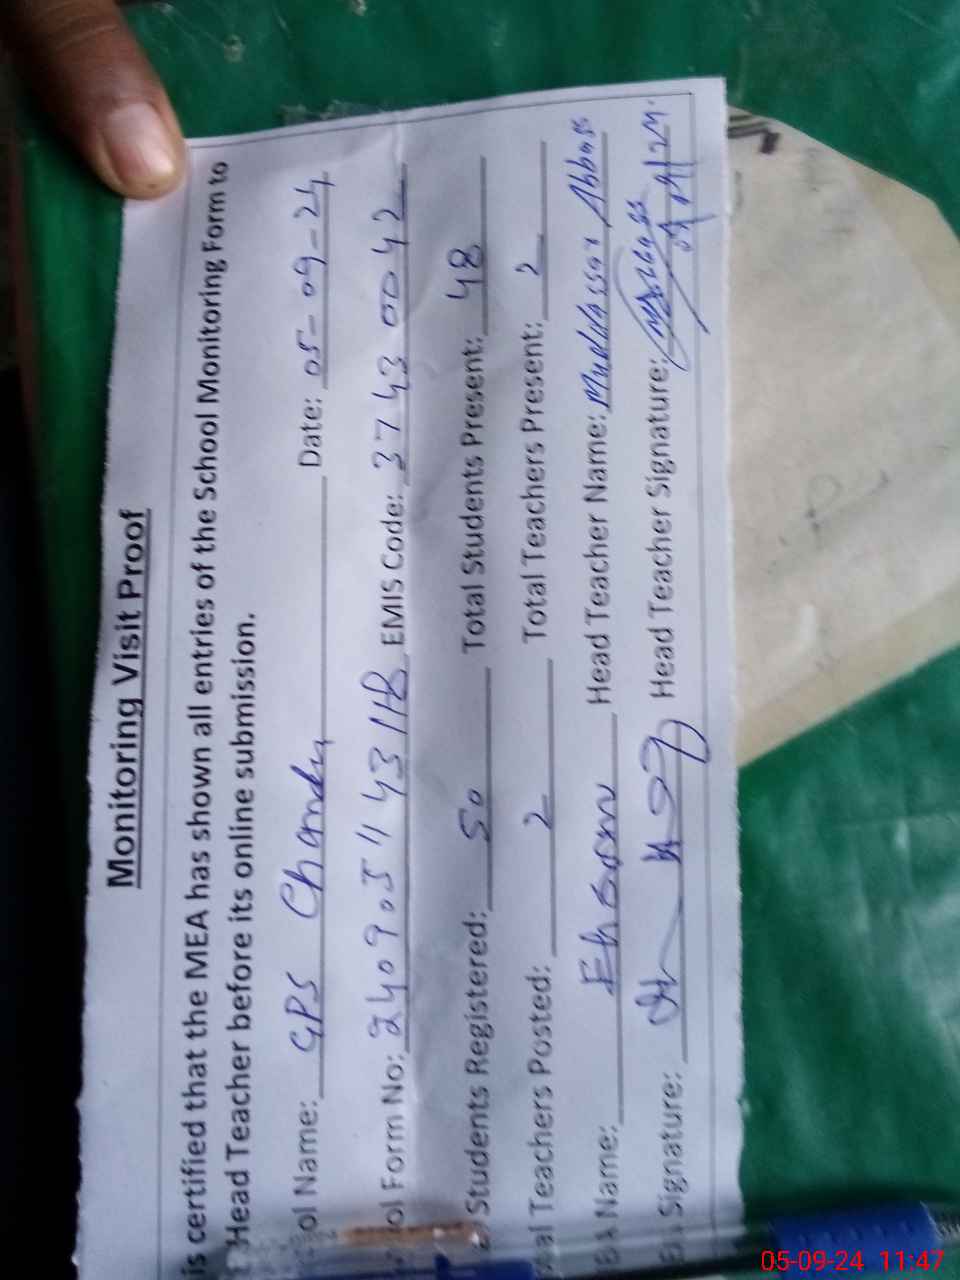 Monitoring Visit Proof
is certified that the MEA has shown all entries of the School Monitoring Form to
Head Teacher before its online submission.
ol Name: GPS Date: 05-09-24
ol Form No: EMIS Code: 37430042
Students Registered: 50 Total Students Present: 48
al Teachers Posted: 2 Total Teachers Present: 2
Name: Head Teacher Name: Muddassar Abbass
Signature: Head Teacher Signature:
05-09-24 11:47